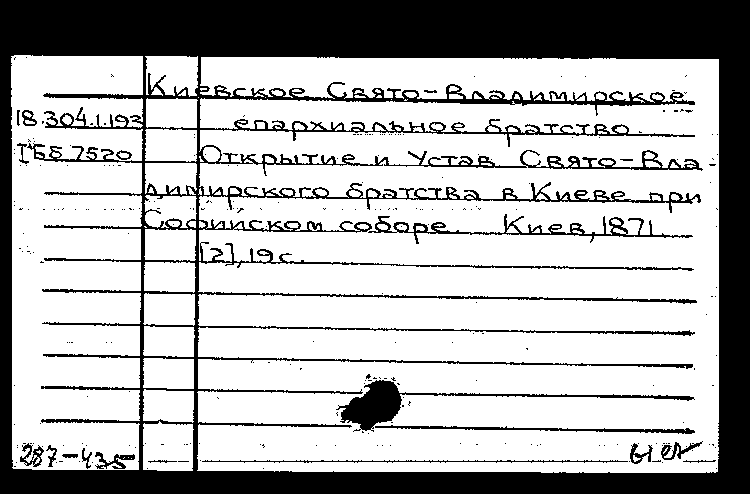 Киевское Свято-Владимирское
18.304.1.193 епархиальное братство.
Открытие и Устав Свято-Вла-
димирского братства в Киеве при
Софийском соборе. Киев, 1871.
[2], 19 с.
287-435